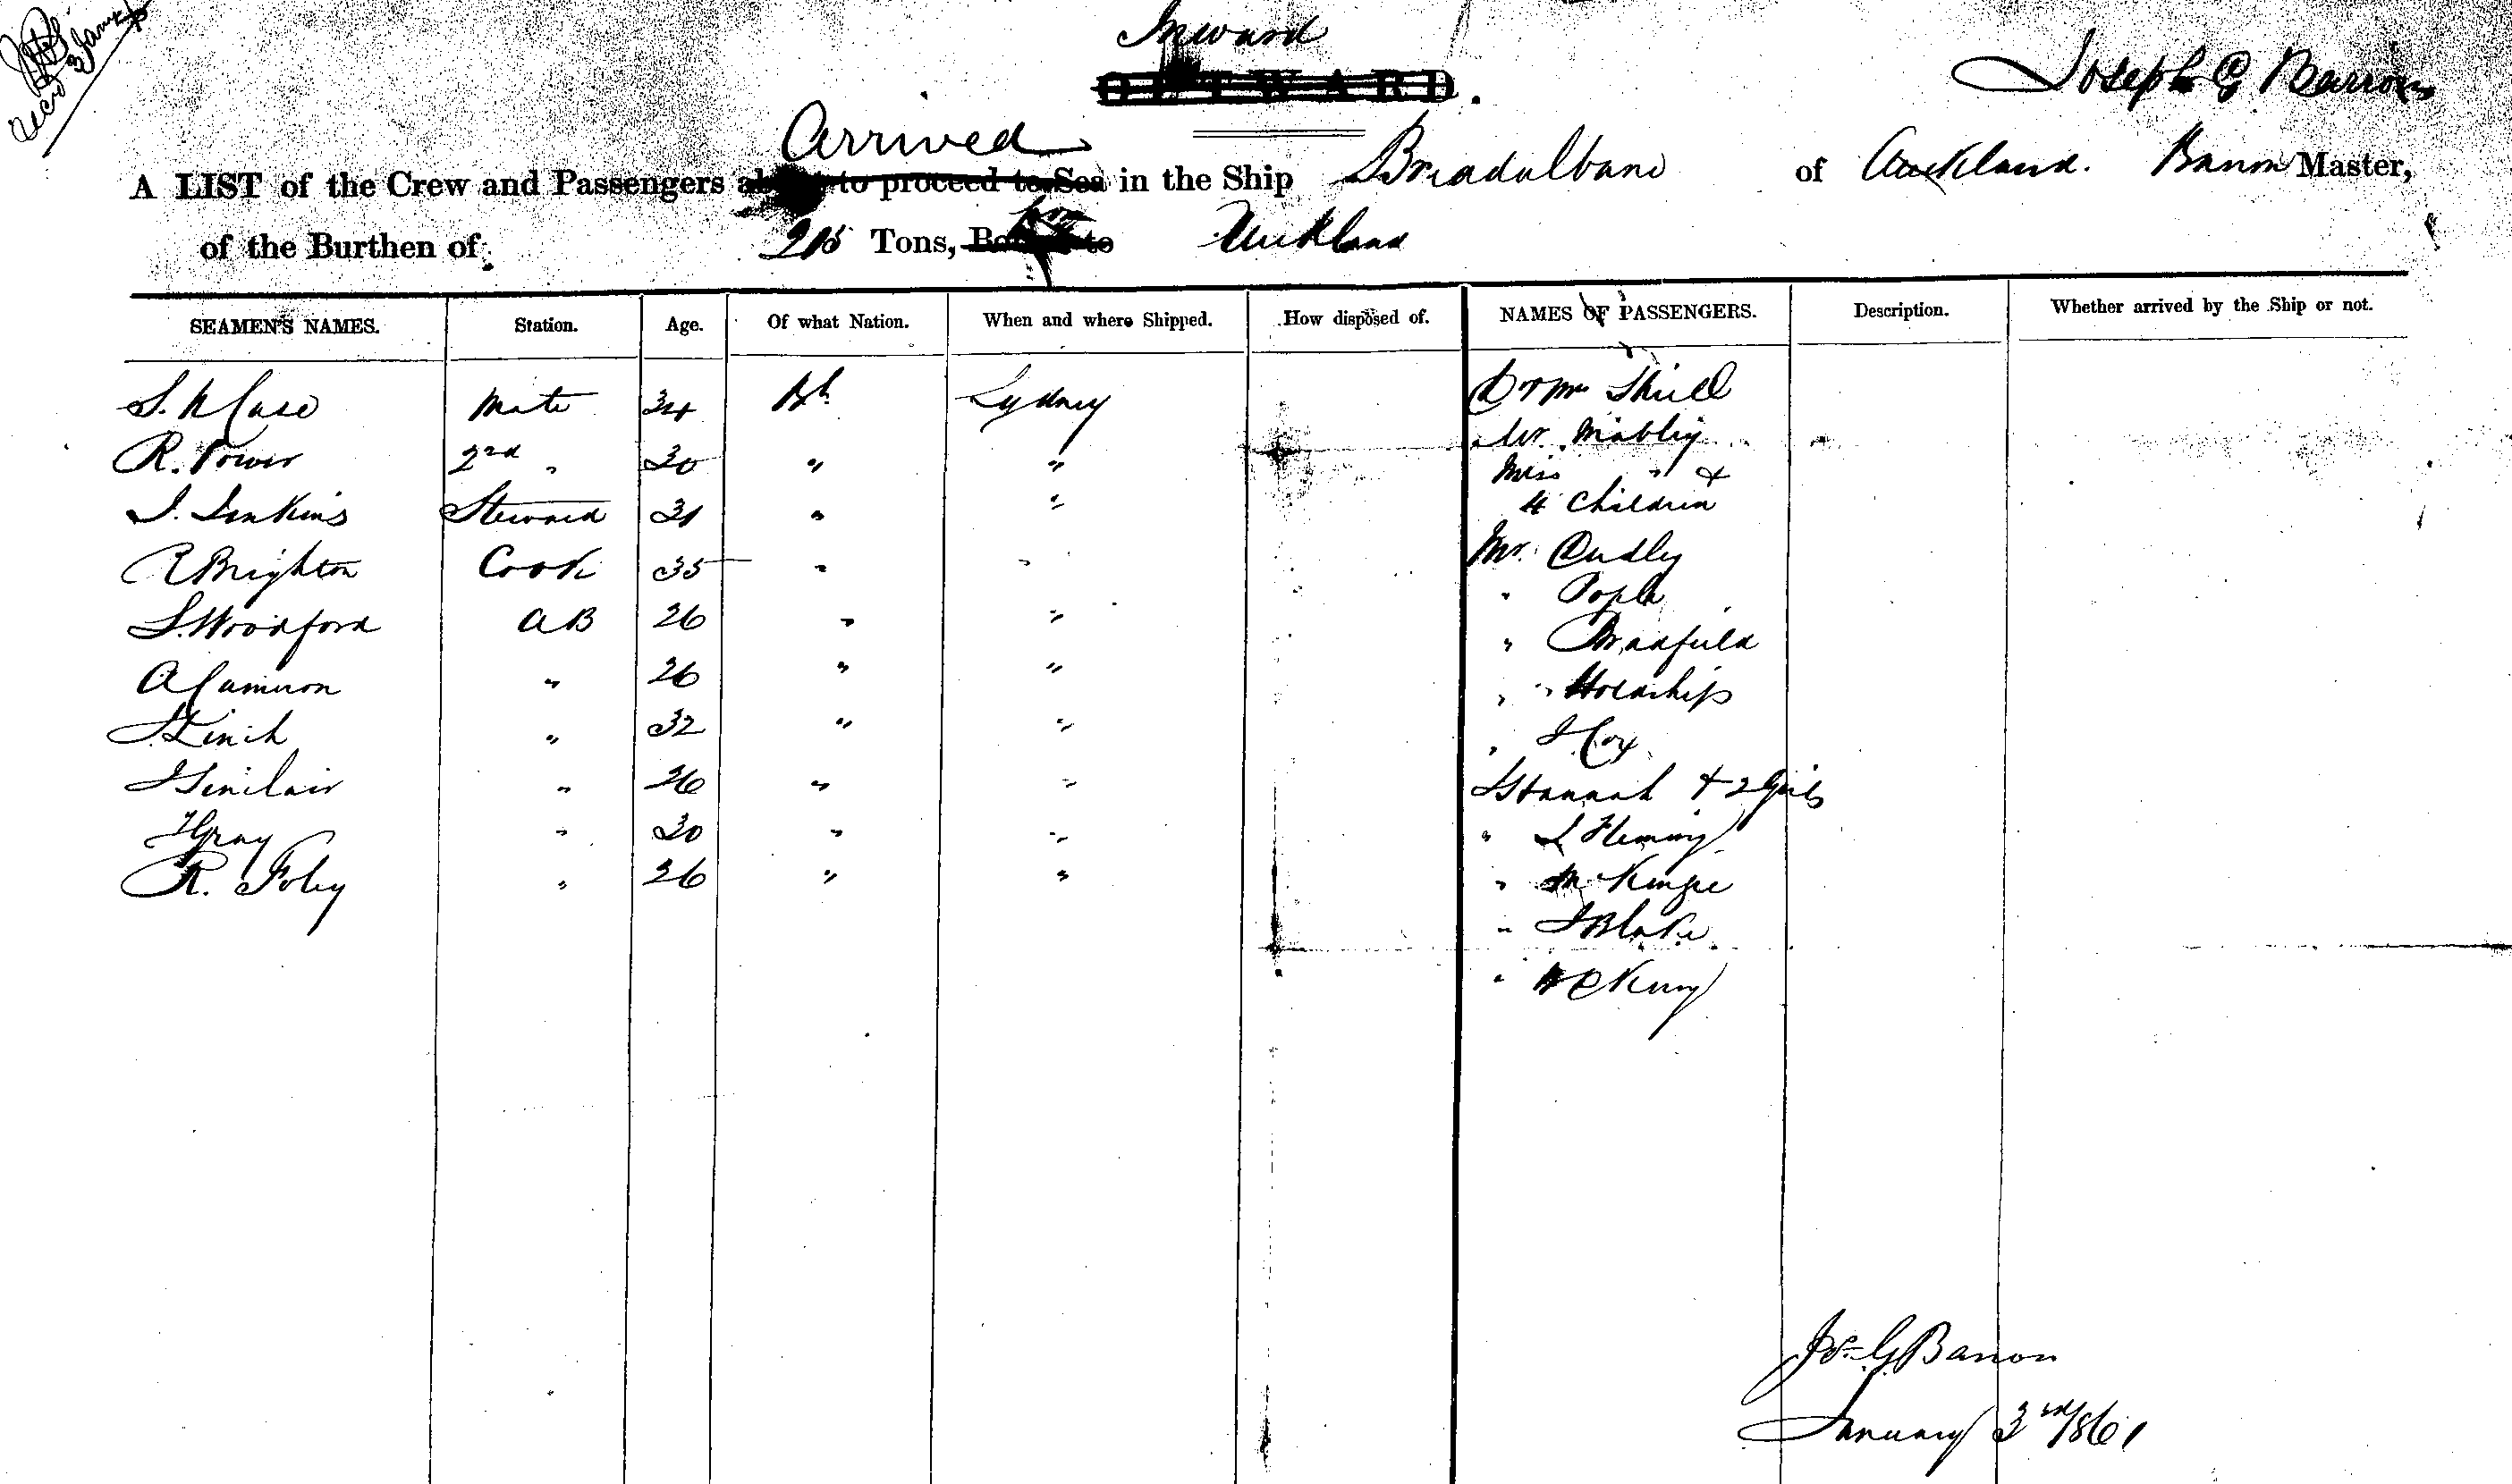 Inward
OUTWARD.
Joseph G Barron
Arrived
A LIST of the Crew and Passengers about to proceed to Sea in the Ship Breadalbane of Auckland. Barron Master,
of the Burthen of 215 Tons, Bound to from Auckland
SEAMEN'S NAMES. Station. Age. Of what Nation. When and where Shipped. How disposed of. NAMES OF PASSENGERS. Description. Whether arrived by the Ship or not.
Case Mate 34 Sydney Mrs
R. Power 2nd " 30 " " Mr
J. Jenkins Steward 31 " " " &
4 Children
R Brighton Cook 35 " " Mr. Dudly
S. Woodford AB 26 " " "
" Bradfield
A Cameron " 26 " " " " Holdship
" 32 " " " J Cox
J Sinclair " 26 " " Hannah & 2 Girls
Gray " 30 " " " Fleming
R. Foley " 26 " " " McKenzie
" J Blake
"
Jos G Barron
January 3rd 1861